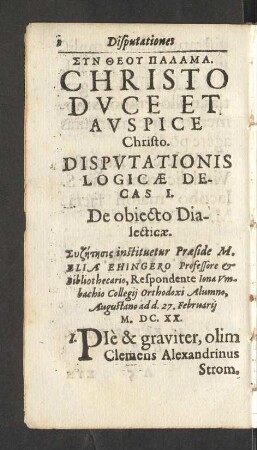 8 Disputationes
ΣΥΝ ΘΕΟΥ ΠΑΛΑΜΑ.
CHRISTO
DVCE ET
AVSPICE
Christo.
DISPVTATIONIS
LOGICÆ DE-
CAS I.
De obiecto Dia-
lecticæ.
Συζήτησις instituetur Præside M.
ELIA EHINGERO Professore &
Bibliothecario, Respondente Iona Vm-
bachio Collegij Orthodoxi Alumno,
Augustano ad d. 27. Februarij
M. DC. XX.
1. PIè & graviter, olim
Clemens Alexandrinus
Strom.